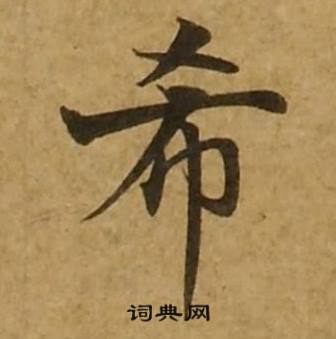 希
词典网